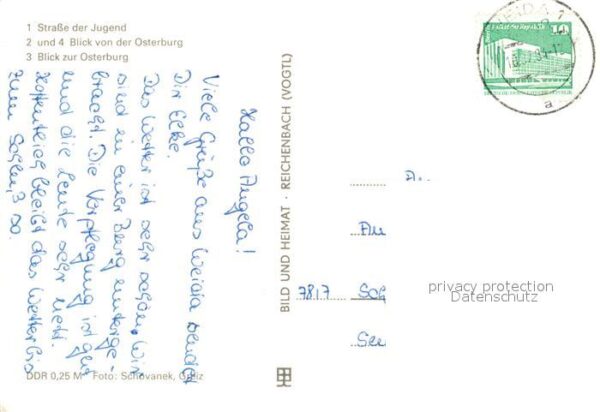 1 Straße der Jugend
2 und 4 Blick von der Osterburg
3 Blick zur Osterburg
Hallo Angela!
Viele Grüße aus Weida sendet
Dir Elke.
Das Wetter ist sehr schön. Wir
sind in einer Burg unterge-
bracht. Die Verpflegung ist gut
und die Leute sehr nett.
Hoffentlich bleibt das Wetter bis
zum so.
DDR 0,25 M Foto: Schovanek, Greiz
BILD UND HEIMAT · REICHENBACH (VOGTL)
WEIDA 1
a
10
A..
An
7817 Sch
See
privacy protection
Datenschutz